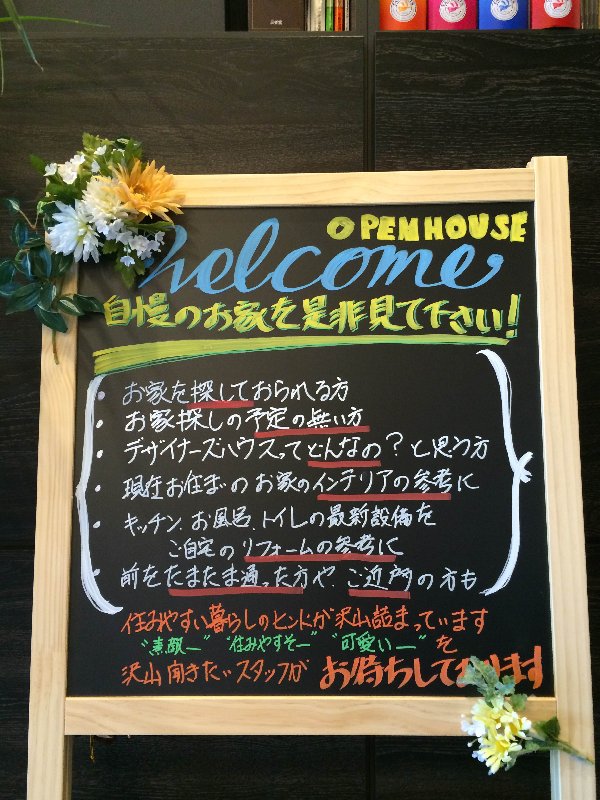 OPENHOUSE
welcome
自慢のお家を是非見て下さい!
・お家を探しておられる方
・お家探しの予定の無い方
・デザイナーズハウスってどんなの?と思う方
・現在お住まいのお家のインテリアの参考に
・キッチン、お風呂、トイレの最新設備を
ご自宅のリフォームの参考に
・前をたまたま通った方や、ご近所の方も
住みやすい暮らしのヒントが沢山詰まっています
"素敵ー" "住みやすそー" "可愛いー" を
沢山聞きたいスタッフが お待ちしております